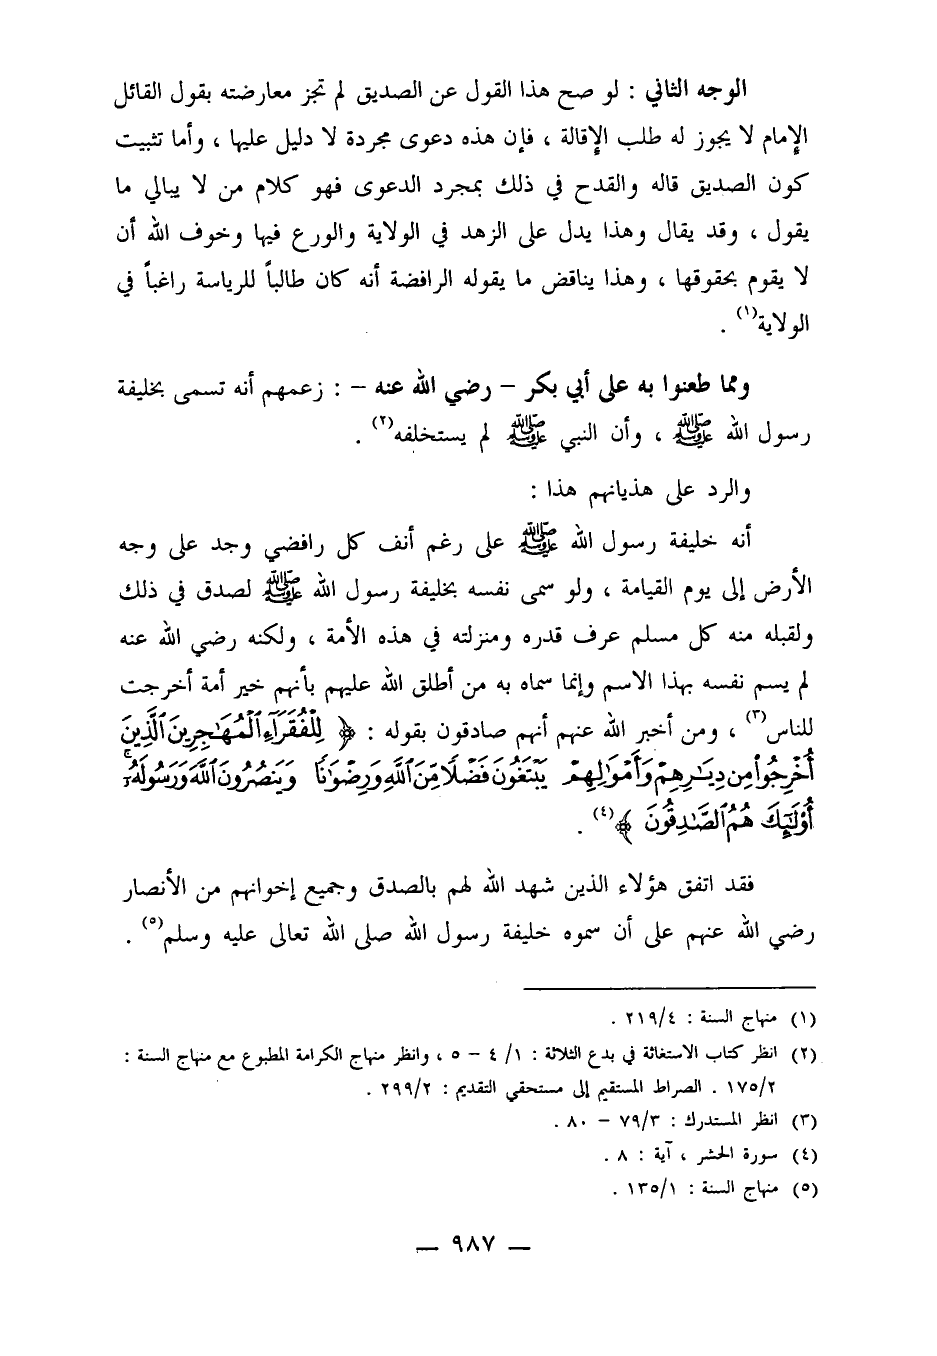 الوجه الثاني : لو صح هذا القول عن الصديق لم تجز معارضته بقول القائل
الإمام لا يجوز له طلب الإقالة ، فإن هذه دعوى مجردة لا دليل عليها ، وأما تثبيت
كون الصديق قاله والقدح في ذلك بمجرد الدعوى فهو كلام من لا يبالي ما
يقول ، وقد يقال وهذا يدل على الزهد في الولاية والورع فيها وخوف الله أن
لا يقوم بحقوقها ، وهذا يناقض ما يقوله الرافضة أنه كان طالباً للرياسة راغباً في
الولاية(١) .
ومما طعنوا به على أبي بكر – رضي الله عنه – : زعمهم أنه تسمى بخليفة
رسول الله ﷺ ، وأن النبي ﷺ لم يستخلفه(٢) .
والرد على هذيانهم هذا :
أنه خليفة رسول الله ﷺ على رغم أنف كل رافضي وجد على وجه
الأرض إلى يوم القيامة ، ولو سمى نفسه بخليفة رسول الله ﷺ لصدق في ذلك
ولقبله منه كل مسلم عرف قدره ومنزلته في هذه الأمة ، ولكنه رضي الله عنه
لم يسم نفسه بهذا الاسم وإنما سماه به من أطلق الله عليهم بأنهم خير أمة أخرجت
للناس(٣) ، ومن أخبر الله عنهم أنهم صادقون بقوله : ﴿ لِلْفُقَرَاءِ الْمُهَاجِرِينَ الَّذِينَ
أُخْرِجُوا مِن دِيَارِهِمْ وَأَمْوَالِهِمْ يَبْتَغُونَ فَضْلًا مِّنَ اللَّهِ وَرِضْوَانًا وَيَنصُرُونَ اللَّهَ وَرَسُولَهُ ۚ
أُولَٰئِكَ هُمُ الصَّادِقُونَ ﴾(٤) .
فقد اتفق هؤلاء الذين شهد الله لهم بالصدق وجميع إخوانهم من الأنصار
رضي الله عنهم على أن سموه خليفة رسول الله صلى الله تعالى عليه وسلم(٥) .
(١) منهاج السنة : ٢١٩/٤ .
(٢) انظر كتاب الاستغاثة في بدع الثلاثة : ١/ ٤ – ٥ ، وانظر منهاج الكرامة المطبوع مع منهاج السنة :
١٧٥/٢ . الصراط المستقيم إلى مستحقي التقديم : ٢٩٩/٢ .
(٣) انظر المستدرك : ٧٩/٣ – ٨٠ .
(٤) سورة الحشر ، آية : ٨ .
(٥) منهاج السنة : ١٣٥/١ .
— ٩٨٧ —